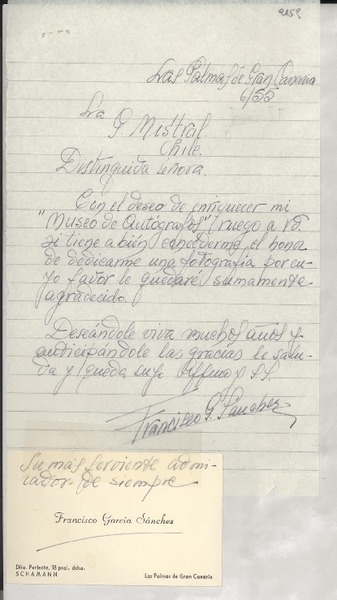 Las Palmas de Gran Canaria
6/55
Sra
G Mistral
Chile
Distinguida señora.
Con el deseo de enriquecer mi
"Museo de Autógrafos", ruego a Vd.
si tiene a bien, concederme el honor
de dedicarme una fotografía por cu-
yo favor le quedaré sumamente
agradecido.
Deseándole viva muchos años y
anticipándole las gracias le salu-
da y queda suyo affmo s.s.
Francisco G. Sánchez
Su más ferviente admi-
rador de siempre
Francisco García Sánchez
Dña. Perfecta, 18 pral. dcha.
SCHAMANN
Las Palmas de Gran Canaria